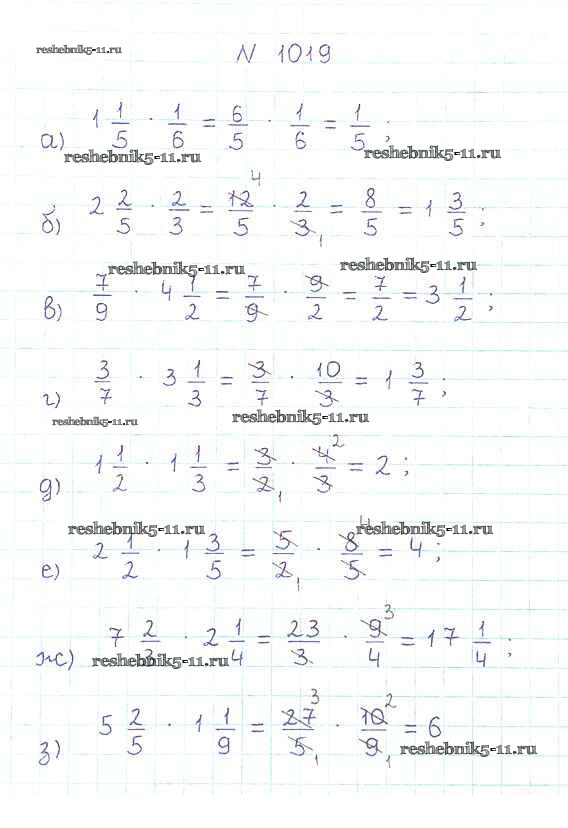 reshebnik5-11.ru
N 1019
а) 1 1/5 · 1/6 = 6/5 · 1/6 = 1/5 ;
reshebnik5-11.ru reshebnik5-11.ru
б) 2 2/5 · 2/3 = 12/5 4 · 2/3 1 = 8/5 = 1 3/5 ;
reshebnik5-11.ru reshebnik5-11.ru
в) 7/9 · 4 1/2 = 7/9 · 9/2 = 7/2 = 3 1/2 ;
г) 3/7 · 3 1/3 = 3/7 · 10/3 = 1 3/7 ;
reshebnik5-11.ru reshebnik5-11.ru
д) 1 1/2 · 1 1/3 = 3/2 1 · 4/3 2 = 2 ;
reshebnik5-11.ru reshebnik5-11.ru
е) 2 1/2 · 1 3/5 = 5/2 1 · 8/5 4 = 4 ;
ж) 7 2/3 · 2 1/4 = 23/3 · 9/4 3 = 17 1/4 ;
reshebnik5-11.ru reshebnik5-11.ru
з) 5 2/5 · 1 1/9 = 27/5 3 1 · 10/9 2 1 = 6
reshebnik5-11.ru